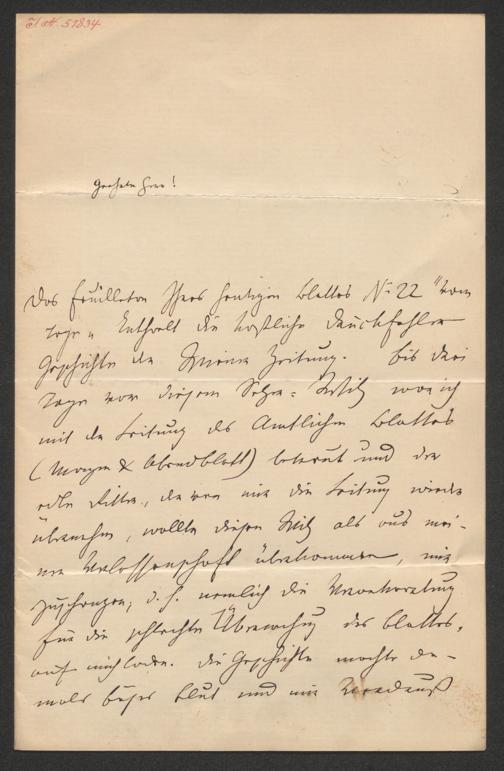 H.I.N. 51834
Geehrter Herr!
Das Feuilleton Ihres heutigen Blattes No 22 "vom
Tage" enthaelt die köstliche Druckfehler
Geschichte der Wiener Zeitung. Bis drei
Tage vor diesem Setzer-Witz war ich
mit der Leitung des Amtlichen Blattes
(Morgen & Abendblatt) betraut und der
edle Ritter, der von mir die Leitung wieder
übernahm, wollte diesen Witz als aus mei-
ner Verlassenschaft übernommen, mir
zuschanzen, d. h. nemlich die Verantwortung
für die schlechte Überwachung des Blattes,
auf mich laden. Die Geschichte machte da-
mals böses Blut und mir Verdruß